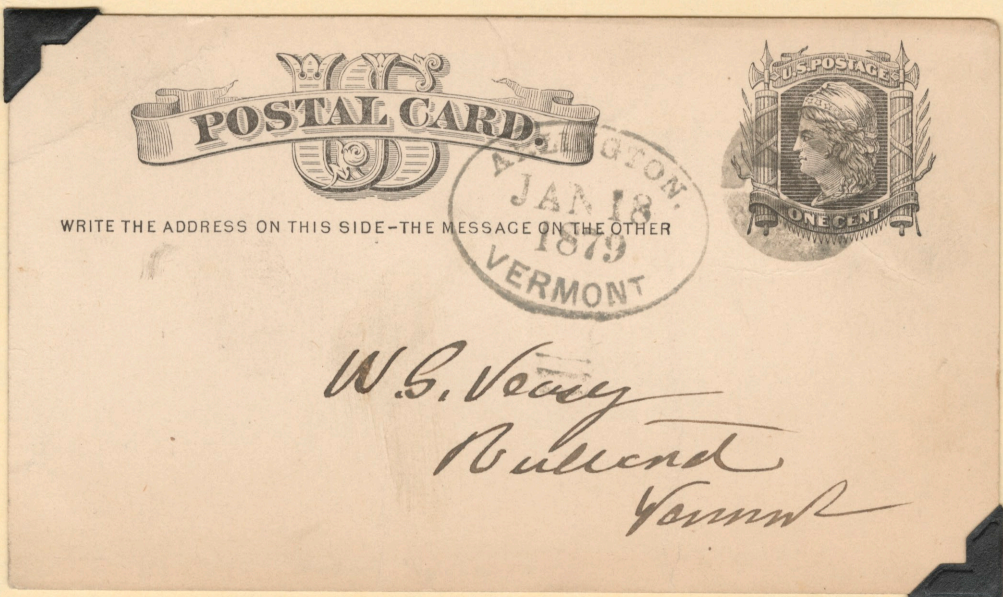 US
POSTAL CARD.
U.S. POSTAGE
ONE CENT
WRITE THE ADDRESS ON THIS SIDE-THE MESSAGE ON THE OTHER
ARLINGTON,
JAN 18
1879
VERMONT
W. G. Veazey
Rutland
Vermont